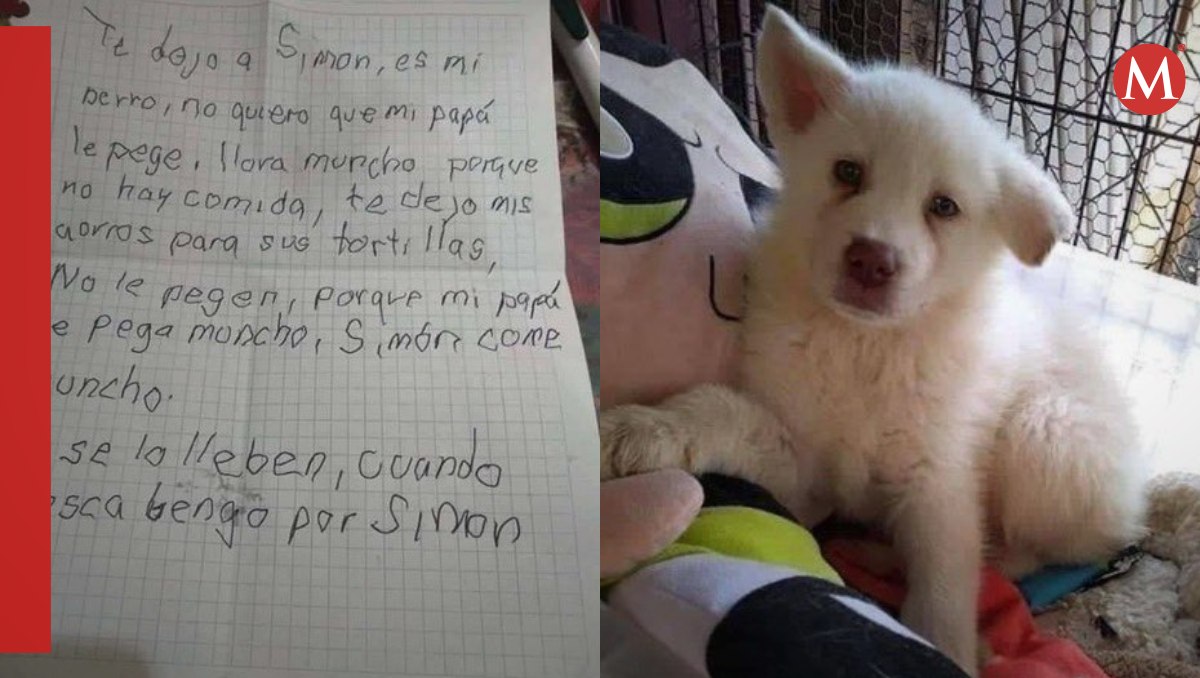 Te dejo a Simon, es mi
perro, no quiero que mi papá
le pege. llora muncho porque
no hay comida, te dejo mis
aorros para sus tortillas,
No le pegen, porque mi papá
e pega moncho, Simón come
uncho.
se lo lleben, cuando
sca bengo por Simon
M